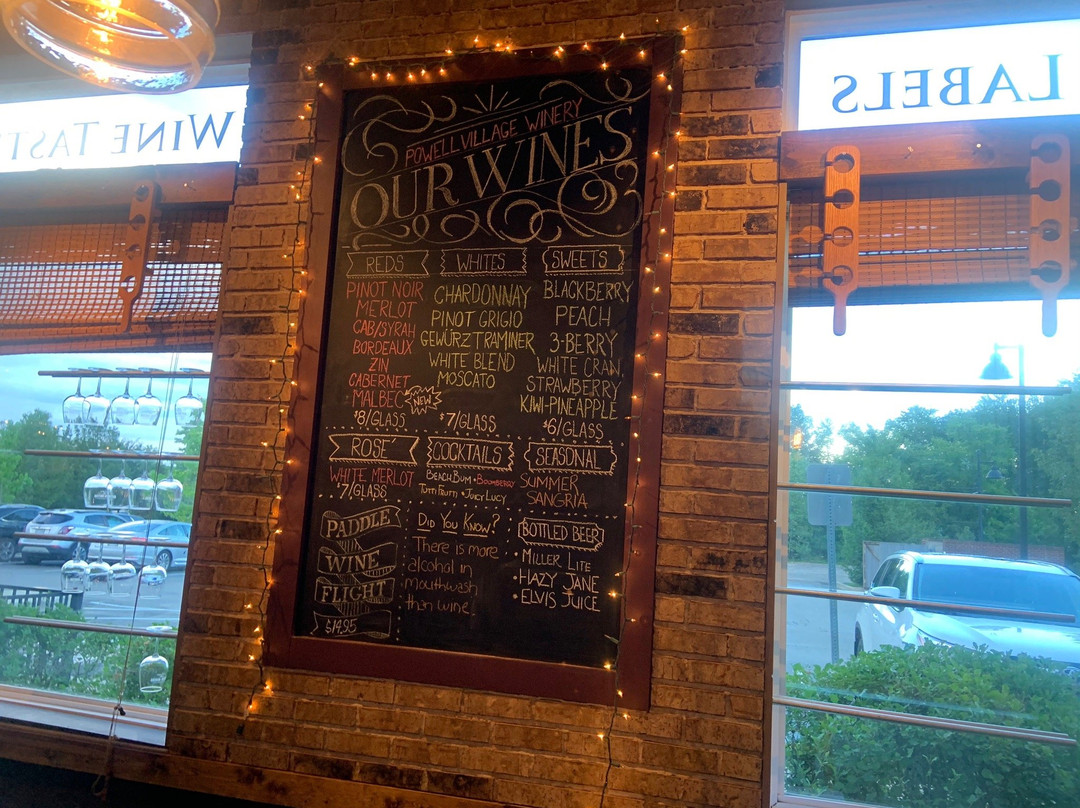 WINE TAST
LABELS
POWELL VILLAGE WINERY
OUR WINES
REDS
PINOT NOIR
MERLOT
CAB/SYRAH
BORDEAUX
ZIN
CABERNET
MALBEC NEW
$8/GLASS
WHITES
CHARDONNAY
PINOT GRIGIO
GEWÜRZTRAMINER
WHITE BLEND
MOSCATO
$7/GLASS
SWEETS
BLACKBERRY
PEACH
3-BERRY
WHITE CRAN.
STRAWBERRY
KIWI-PINEAPPLE
$6/GLASS
ROSE'
WHITE MERLOT
$7/GLASS
COCKTAILS
BEACH BUM • BOOMBERRY
TUTTI FRUTTI • JUICY LUCY
SEASONAL
SUMMER
SANGRIA
PADDLE
WINE
FLIGHT
$14.95
DID YOU KNOW?
There is more
alcohol in
mouthwash
than wine.
BOTTLED BEER
• MILLER LITE
• HAZY JANE
• ELVIS JUICE